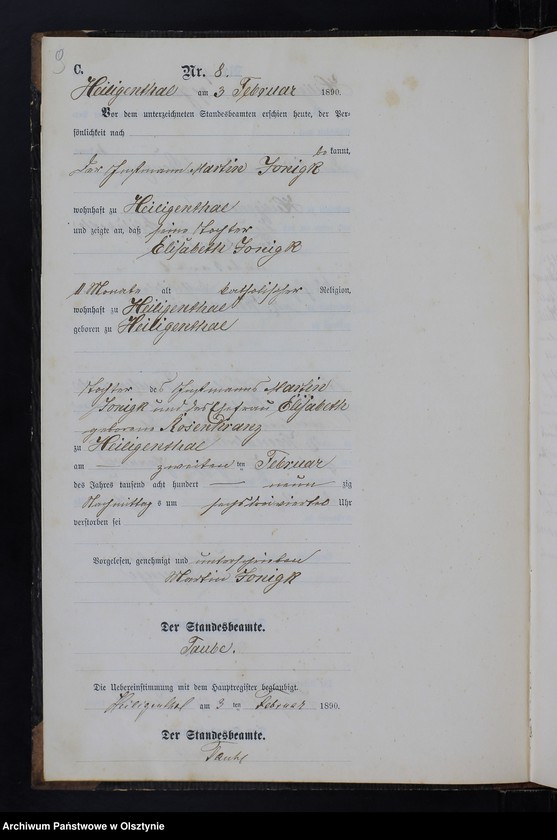 9
C.
Nr. 8.
Heiligenthal am 3 Februar 1890.
Vor dem unterzeichneten Standesbeamten erschien heute, der Per-
sönlichkeit nach
be kannt,
der Instmann Martin Jonigk
wohnhaft zu Heiligenthal
und zeigte an, daß seine Tochter
Elisabeth Jonigk
11 Monate alt katholischer Religion,
wohnhaft zu Heiligenthal
geboren zu Heiligenthal
Tochter des Instmanns Martin
Jonigk und der Ehefrau Elisabeth
geborene Rosenkranz
zu Heiligenthal
am zweiten ten Februar
des Jahres tausend acht hundert neun zig
Nachmittag s um sechs dreiviertel Uhr
verstorben sei
Vorgelesen, genehmigt und unterschrieben
Martin Jonigk
Der Standesbeamte.
Taube.
Die Uebereinstimmung mit dem Hauptregister beglaubigt.
Heiligenthal am 3 ten Februar 1890.
Der Standesbeamte.
Taube
Archiwum Państwowe w Olsztynie